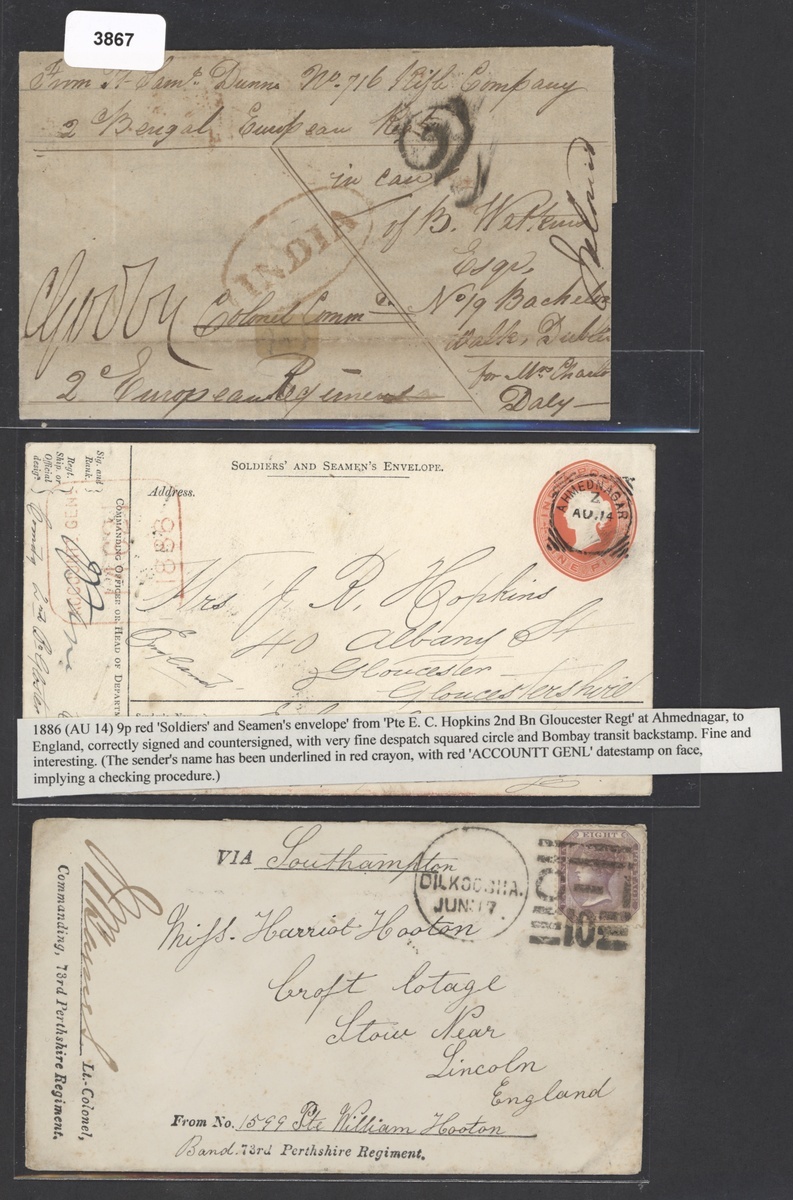 3867
From Pt Saml. Dunne No. 716 Rifle Company
2d Bengal European Regt
in care
of B. Watkins
Esqr.
INDIA
Colonel Commd. No. 19 Bachelor
Walk, Dublin
2d European Regiment
for Mrs
Daly
Ireland
SOLDIERS' AND SEAMEN'S ENVELOPE.
Address.
AHMEDNAGAR
Z
AU.14
Sig. and
Rank.
Regt.
Ship. or
Official
desigⁿ.
COMMANDING OFFICER OR HEAD OF
GENL
1886
Mrs J. R. Hopkins
40 Albany St
England
Gloucester
Gloucestershire
1886 (AU 14) 9p red 'Soldiers' and Seamen's envelope' from 'Pte E. C. Hopkins 2nd Bn Gloucester Regt' at Ahmednagar, to
England, correctly signed and countersigned, with very fine despatch squared circle and Bombay transit backstamp. Fine and
interesting. (The sender's name has been underlined in red crayon, with red 'ACCOUNTT GENL' datestamp on face,
implying a checking procedure.)
VIA Southampton
DILKOOSHA.
JUN:17.
EIGHT
102
Miss. Harriot Hooton
Croft Cotage
Stow Near
Lincoln
England
From No. 1599 Pte William Hooton
Band. 73rd Perthshire Regiment.
Lt.-Colonel,
Commanding, 73rd Perthshire Regiment.